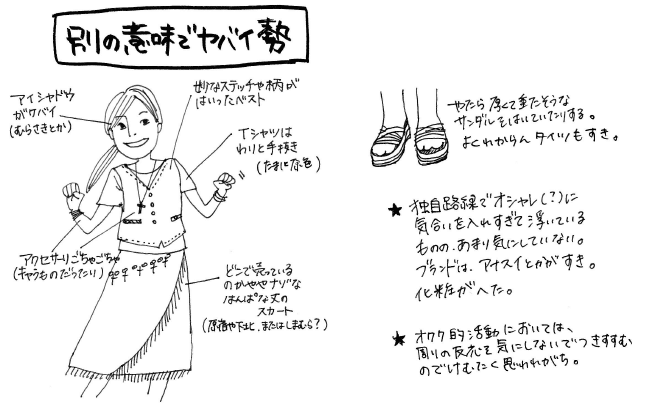 別の意味でヤバイ勢
アイシャドウ
がヤバイ
(むらさきとか)
妙なステッチや柄が
はいったベスト
Tシャツは
わりと手抜き
(たまに原色)
アクセサリごちゃごちゃ
(キャラものだったり)
どこで売っている
のかややナゾな
はんぱな丈の
スカート
(原宿や下北、またはしまむら?)
やたら厚くて重たそうな
サンダルをはいていたりする。
よくわからんタイツもすき。
★独自路線でオシャレ(?)に
気合いを入れすぎて浮いている
ものの、あまり気にしていない。
ブランドは、アナスイとかがすき。
化粧がへた。
★オタク的活動においては、
周りの反応を気にしないでつきすすむ
のでけむたく思われがち。